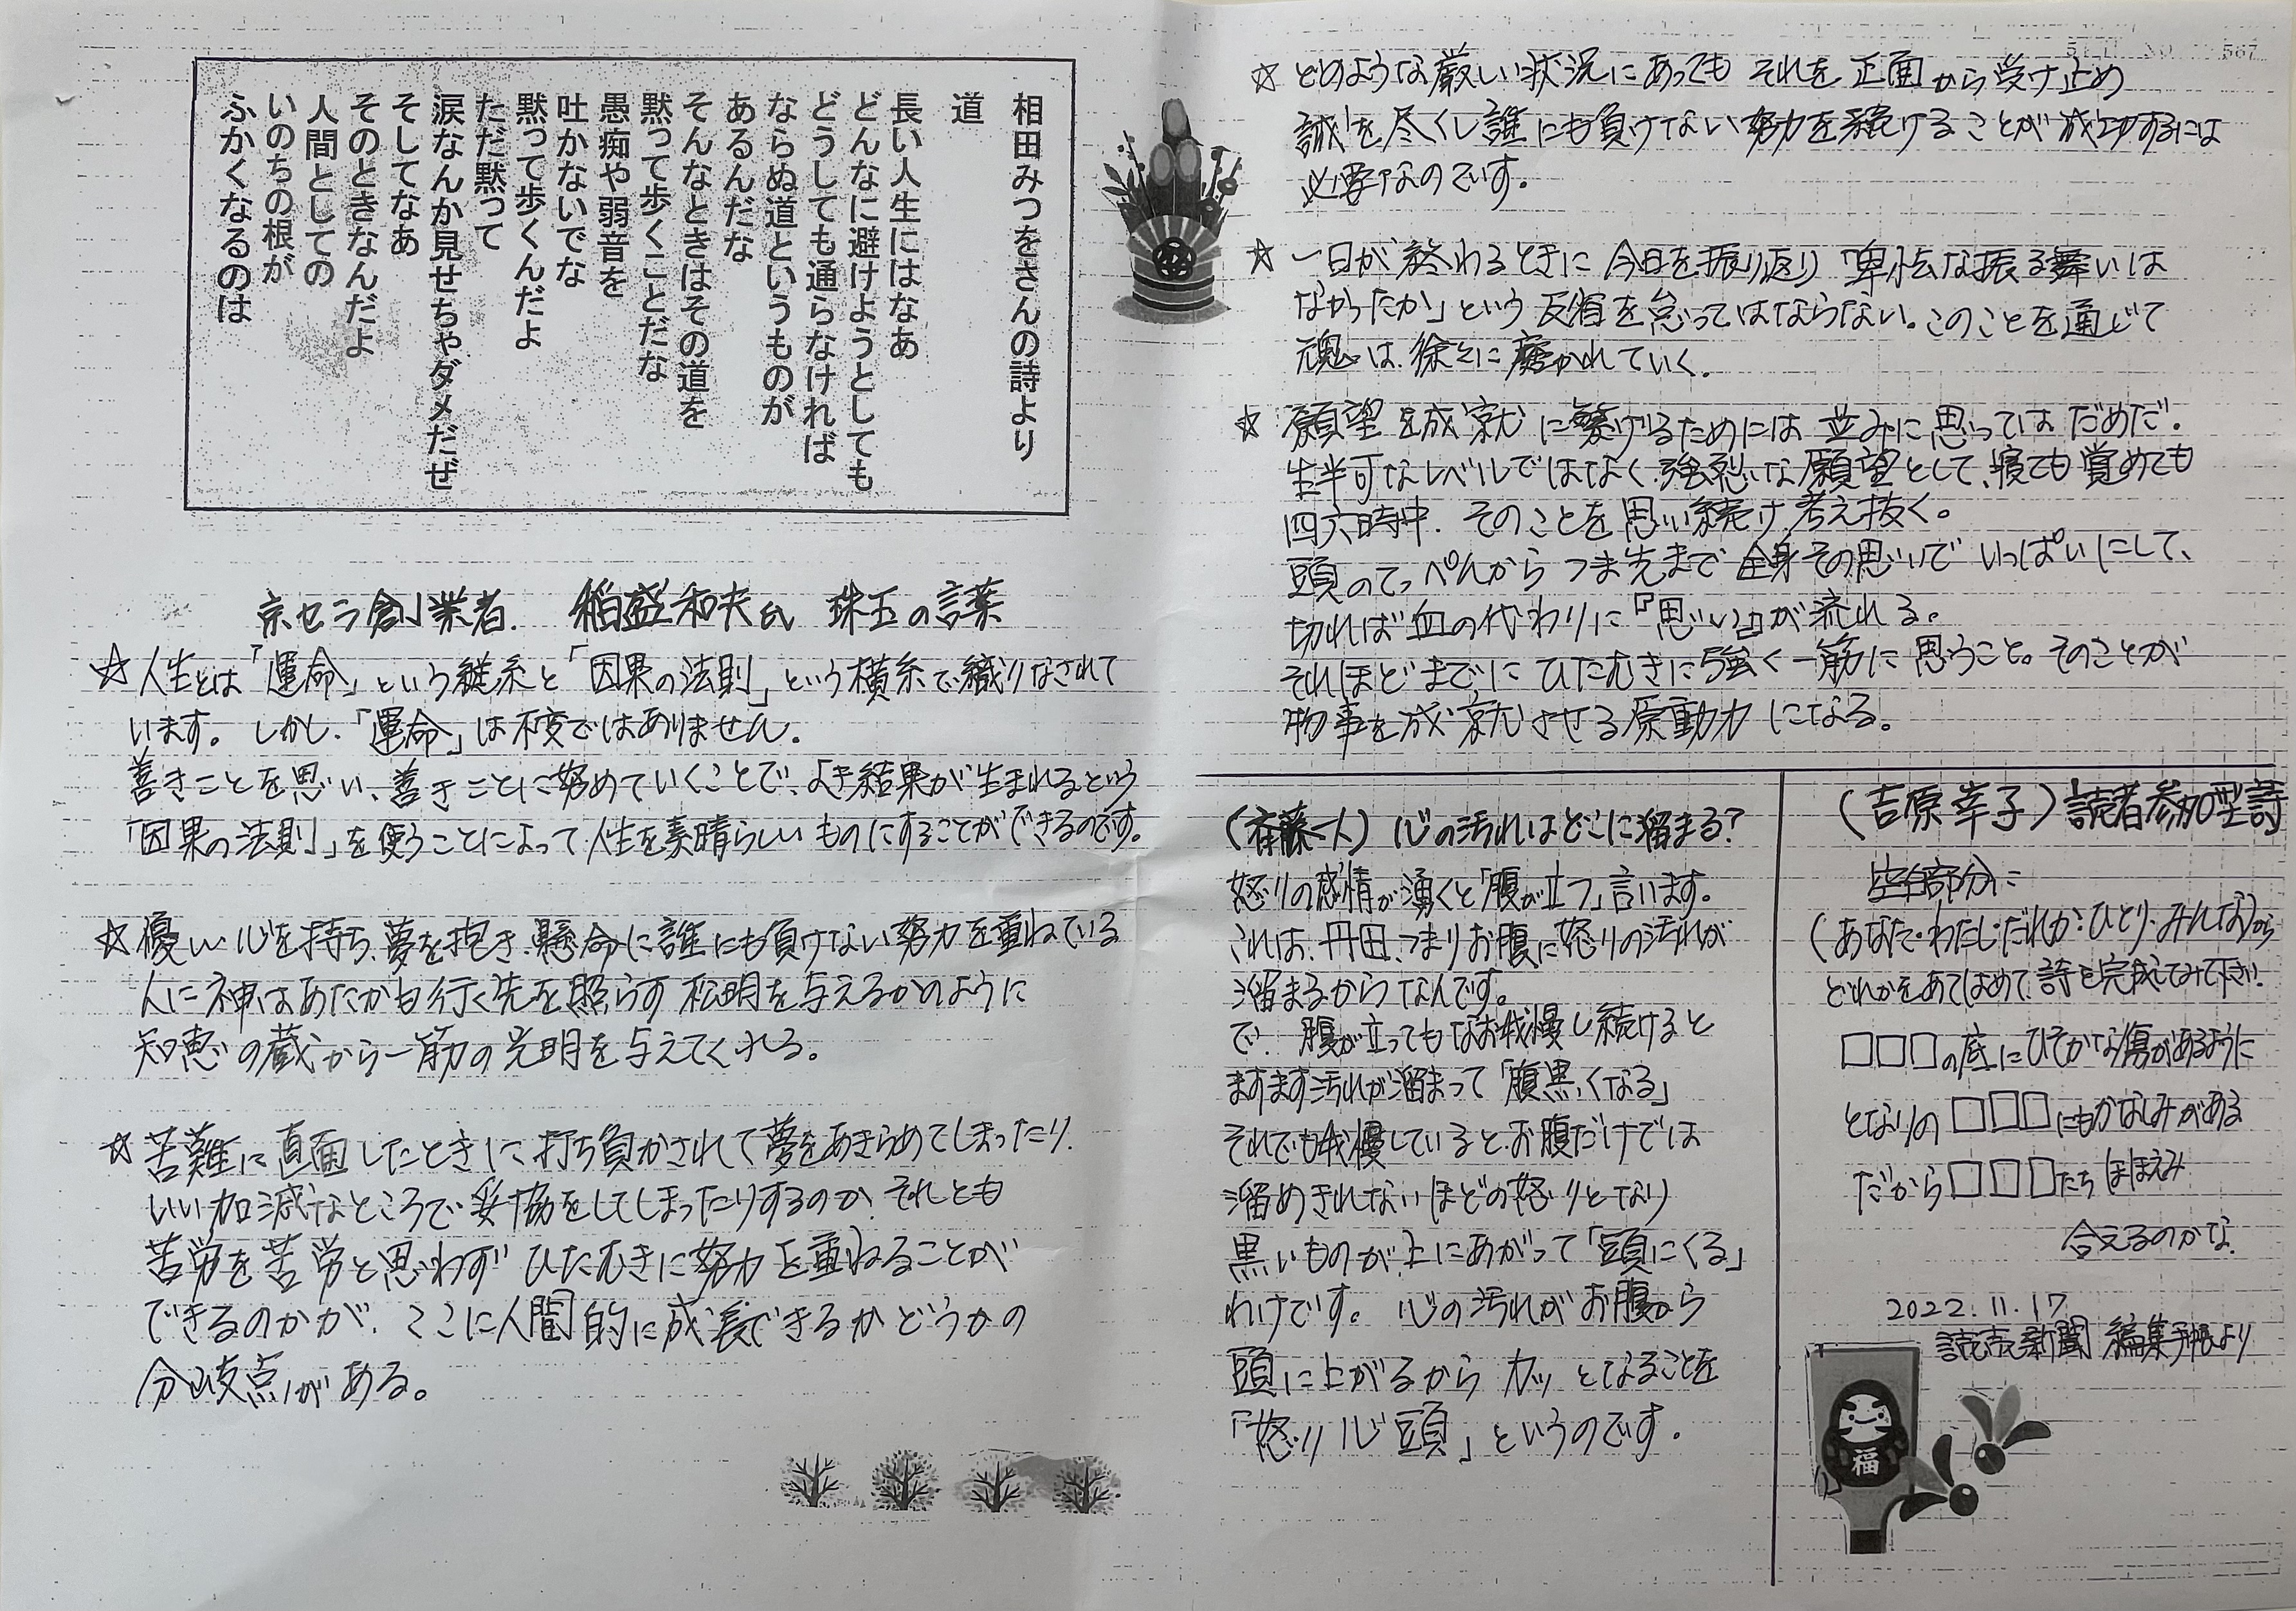 相田みつをさんの詩より
道
長い人生にはなあ
どんなに避けようとしても
どうしても通らなければ
ならぬ道というものが
あるんだな
そんなときはその道を
黙って歩くことだな
愚痴や弱音を
吐かないでな
黙って歩くんだよ
ただ黙って
涙なんか見せちゃダメだぜ
そしてなあ
そのときなんだよ
人間としての
いのちの根が
ふかくなるのは
京セラ創業者. 稲盛和夫氏 珠玉の言葉
☆人生とは「運命」という縦糸と「因果の法則」という横糸で織りなされて
います。しかし、「運命」は不変ではありません。
善きことを思い、善きことに努めていくことで、よき結果が生まれるという
「因果の法則」を使うことによって人生を素晴らしいものにすることができるのです。
☆優しい心を持ち、夢を抱き、懸命に誰にも負けない努力を重ねている
人に神はあたかも行く先を照らす松明を与えるかのように
知恵の蔵から一筋の光明を与えてくれる。
☆苦難に直面したときに打ち負かされて夢をあきらめてしまったり、
いい加減なところで妥協をしてしまったりするのか、それとも
苦労を苦労と思わず ひたむきに努力を重ねることが
できるのかが、ここに人間的に成長できるかどうかの
分岐点がある。
567
☆どのような厳しい状況にあっても それを正面から受け止め
誠を尽くし誰にも負けない努力を続けることが成功するには
必要なのです。
☆一日が終わるときに 今日を振り返り「卑怯な振る舞いは
なかったか」という反省を怠ってはならない。このことを通じて
魂は、徐々に磨かれていく。
☆願望を成就に繋げるためには並みに思ってはだめだ。
生半可なレベルではなく、強烈な願望として、寝ても覚めても
四六時中、そのことを思い続け、考え抜く。
頭のてっぺんからつま先まで全身その思いでいっぱいにして、
切れば血の代わりに『思い』が流れる。
それほどまでに ひたむきに強く一筋に思うこと。そのことが
物事を成就させる原動力になる。
(斉藤一人) 心の汚れはどこに溜まる?
怒りの感情が湧くと「腹が立つ」言います。
これは、丹田、つまりお腹に怒りの汚れが
溜まるからなんです。
で、腹が立ってもなお我慢し続けると
ますます汚れが溜まって「腹黒くなる」
それでも我慢していると、お腹だけでは
溜めきれないほどの怒りとなり
黒いものが上にあがって「頭にくる」
わけです。心の汚れがお腹から
頭に上がるから カッとなることを
「怒り心頭」というのです。
(吉原幸子)読者参加型詩
空白部分に
(あなた・わたし・だれか・ひとり・みんな)から
どれかをあてはめて、詩を完成してみて下さい.
□□□の底にひそかな傷があるように
となりの□□□にもかなしみがある
だから□□□たち ほほえみ
合えるのかな
2022.11.17
読売新聞 編集手帳より
福